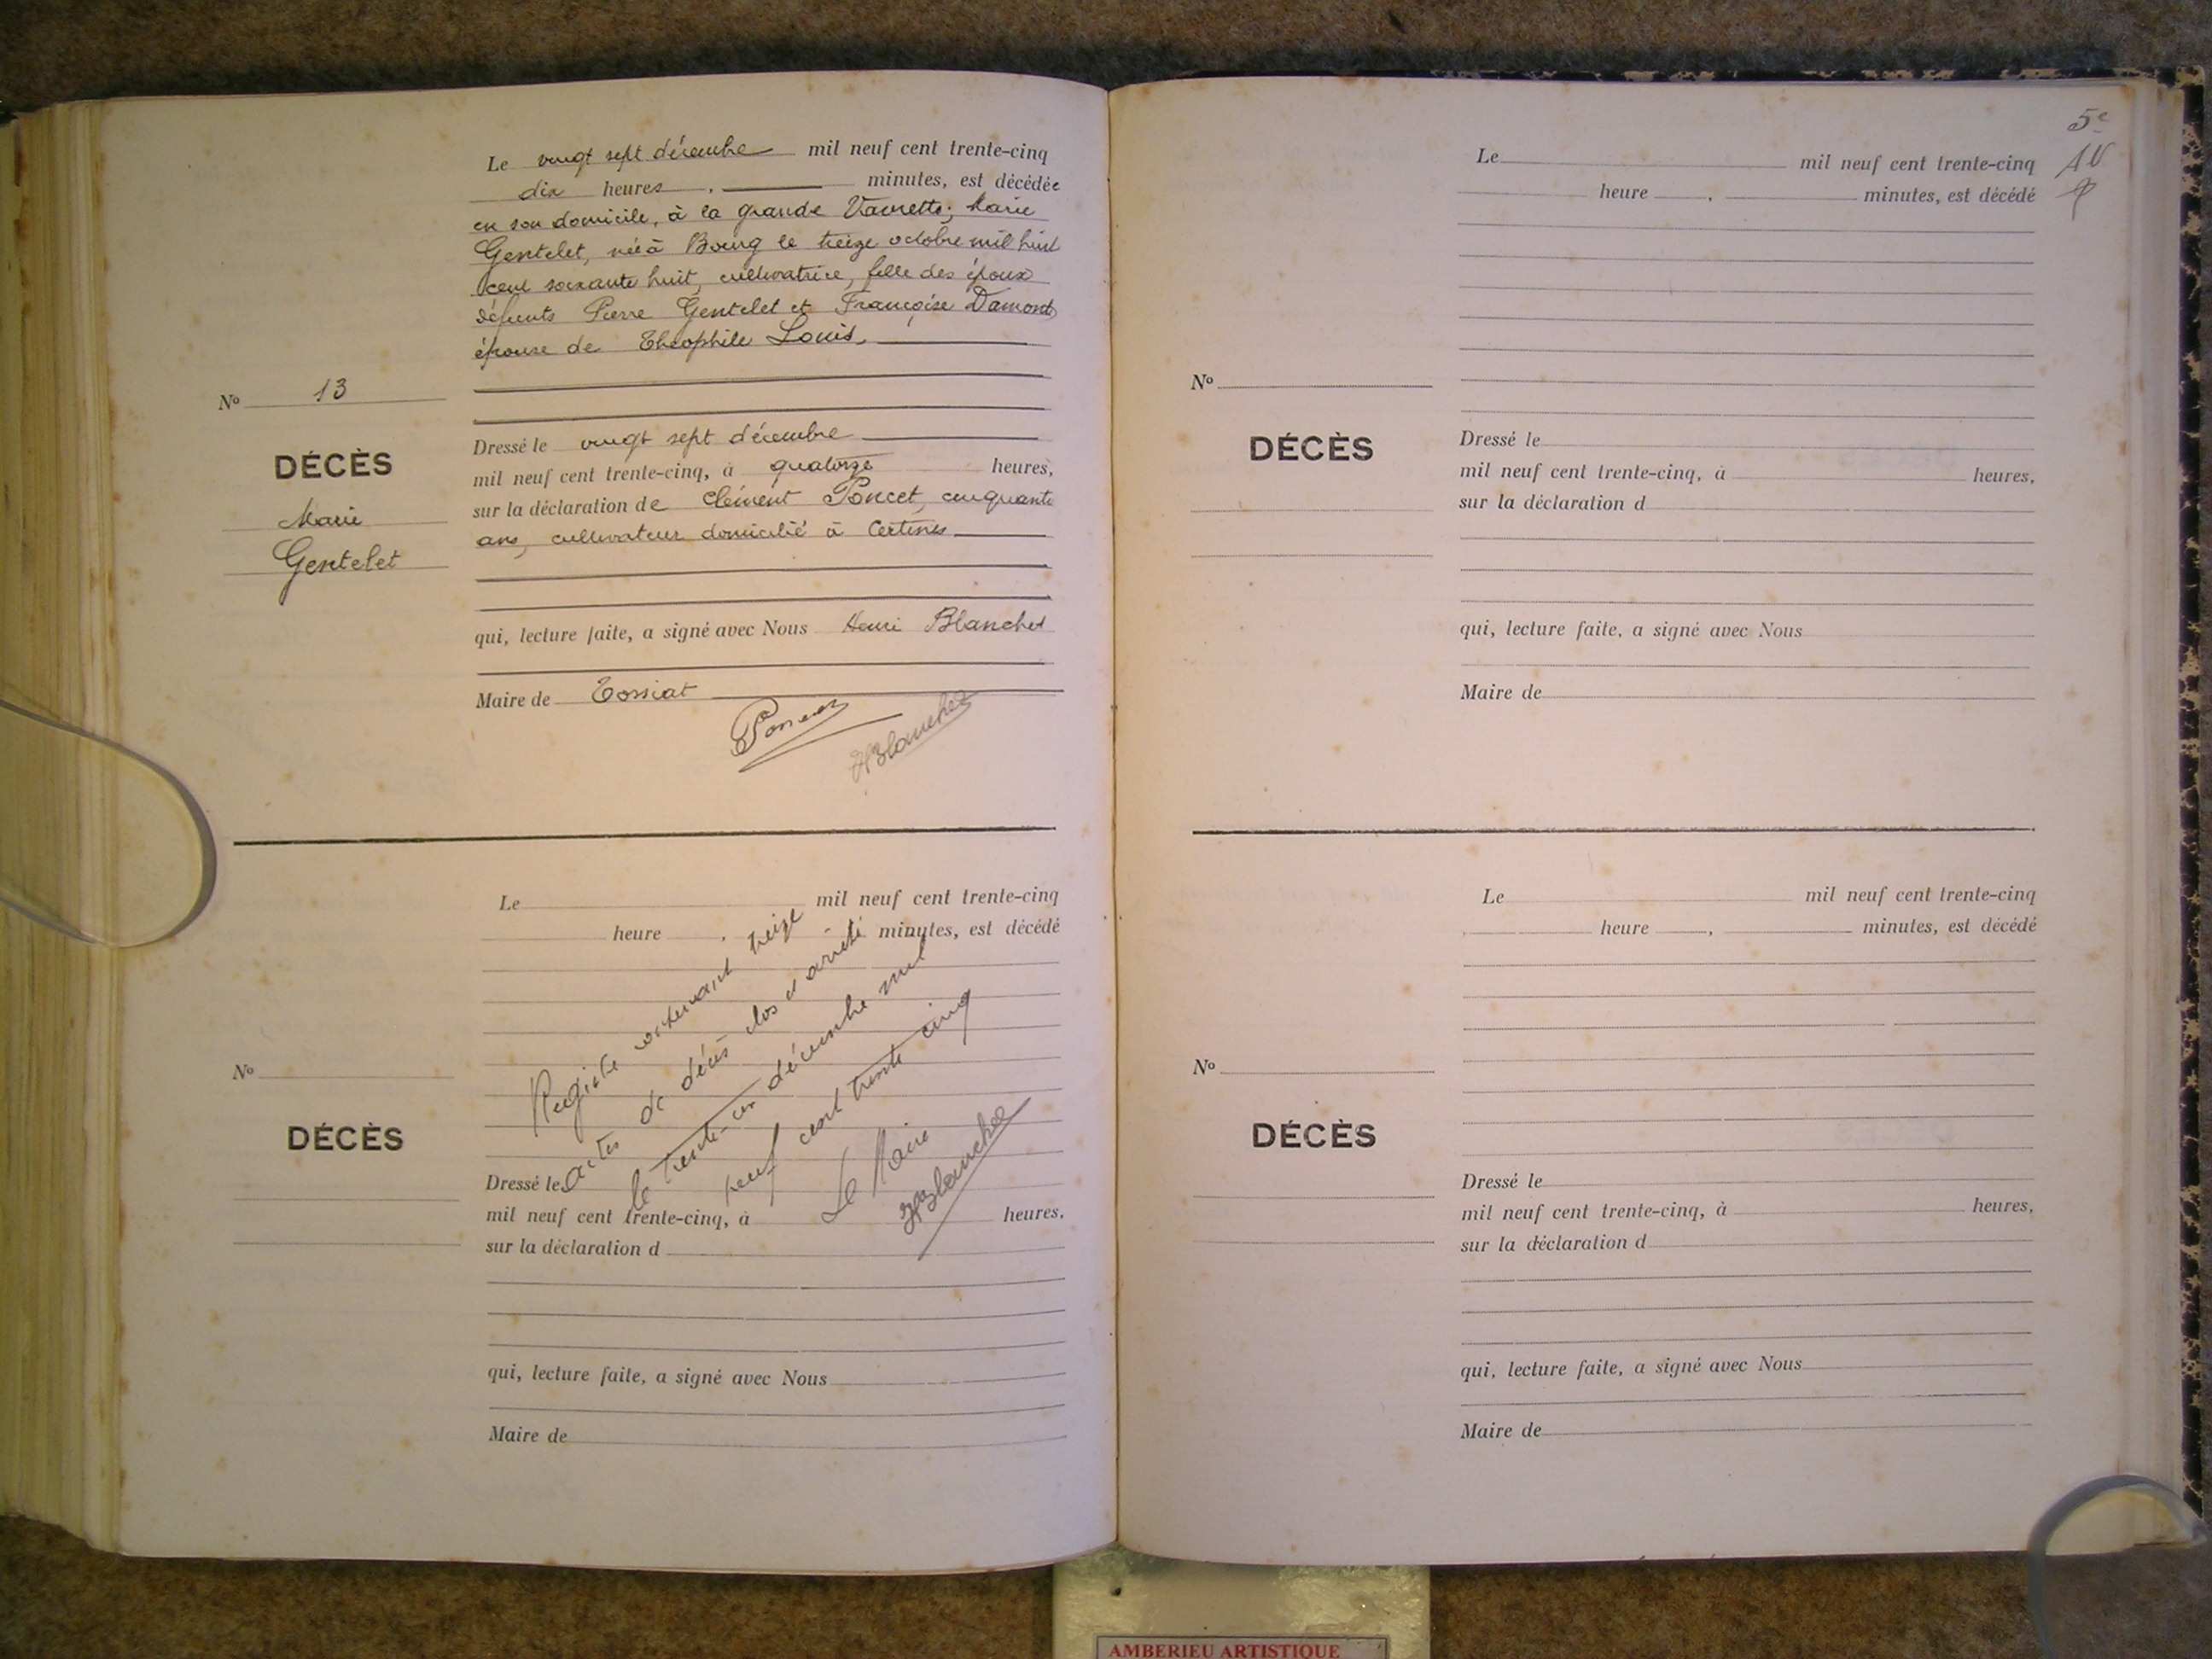 Le vingt sept décembre mil neuf cent trente-cinq
dix heures , minutes, est décédée
en son domicile, à la grande Vavrette, Marie
Gentelet, née à Bourg le treize octobre mil huit
cent soixante huit, cultivatrice, fille des époux
défunts Pierre Gentelet et Françoise Damond
épouse de Théophile Louis.
No 13
DÉCÈS
Marie
Gentelet
Dressé le vingt sept décembre
mil neuf cent trente-cinq, à quatorze heures,
sur la déclaration de Clément Poncet, cinquante
ans, cultivateur domicilié à Certines
qui, lecture faite, a signé avec Nous Henri Blanchet
Maire de Tossiat
Poncet
HBlanchet
Le mil neuf cent trente-cinq
heure , minutes, est décédé
Registre contenant treize
actes de décès clos et arrêté
le trente-un décembre mil
neuf cent trente cinq
Le Maire
HBlanchet
No
DÉCÈS
Dressé le
mil neuf cent trente-cinq, à heures,
sur la déclaration d
qui, lecture faite, a signé avec Nous
Maire de
5e
Le mil neuf cent trente-cinq
heure , minutes, est décédé
No
DÉCÈS
Dressé le
mil neuf cent trente-cinq, à heures,
sur la déclaration d
qui, lecture faite, a signé avec Nous
Maire de
Le mil neuf cent trente-cinq
heure , minutes, est décédé
No
DÉCÈS
Dressé le
mil neuf cent trente-cinq, à heures,
sur la déclaration d
qui, lecture faite, a signé avec Nous
Maire de
AMBERIEU ARTISTIQUE